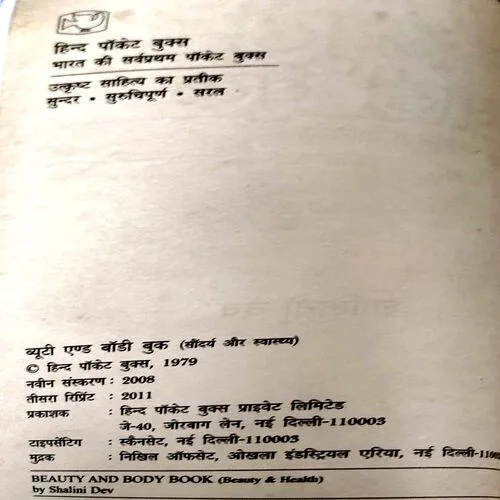 हिन्द पॉकेट बुक्स
भारत की सर्वप्रथम पॉकेट बुक्स
उत्कृष्ट साहित्य का प्रतीक
सुन्दर • सुरुचिपूर्ण • सरल
ब्यूटी एण्ड बॉडी बुक (सौंदर्य और स्वास्थ्य)
© हिन्द पॉकेट बुक्स, 1979
नवीन संस्करण : 2008
तीसरा रिप्रिंट : 2011
प्रकाशक : हिन्द पॉकेट बुक्स प्राइवेट लिमिटेड
जे-40, जोरबाग लेन, नई दिल्ली-110003
टाइपसेटिंग : स्कैनसेट, नई दिल्ली-110003
मुद्रक : निखिल ऑफसेट, ओखला इंडस्ट्रियल एरिया, नई दिल्ली-
BEAUTY AND BODY BOOK (Beauty & Health)
by Shalini Dev